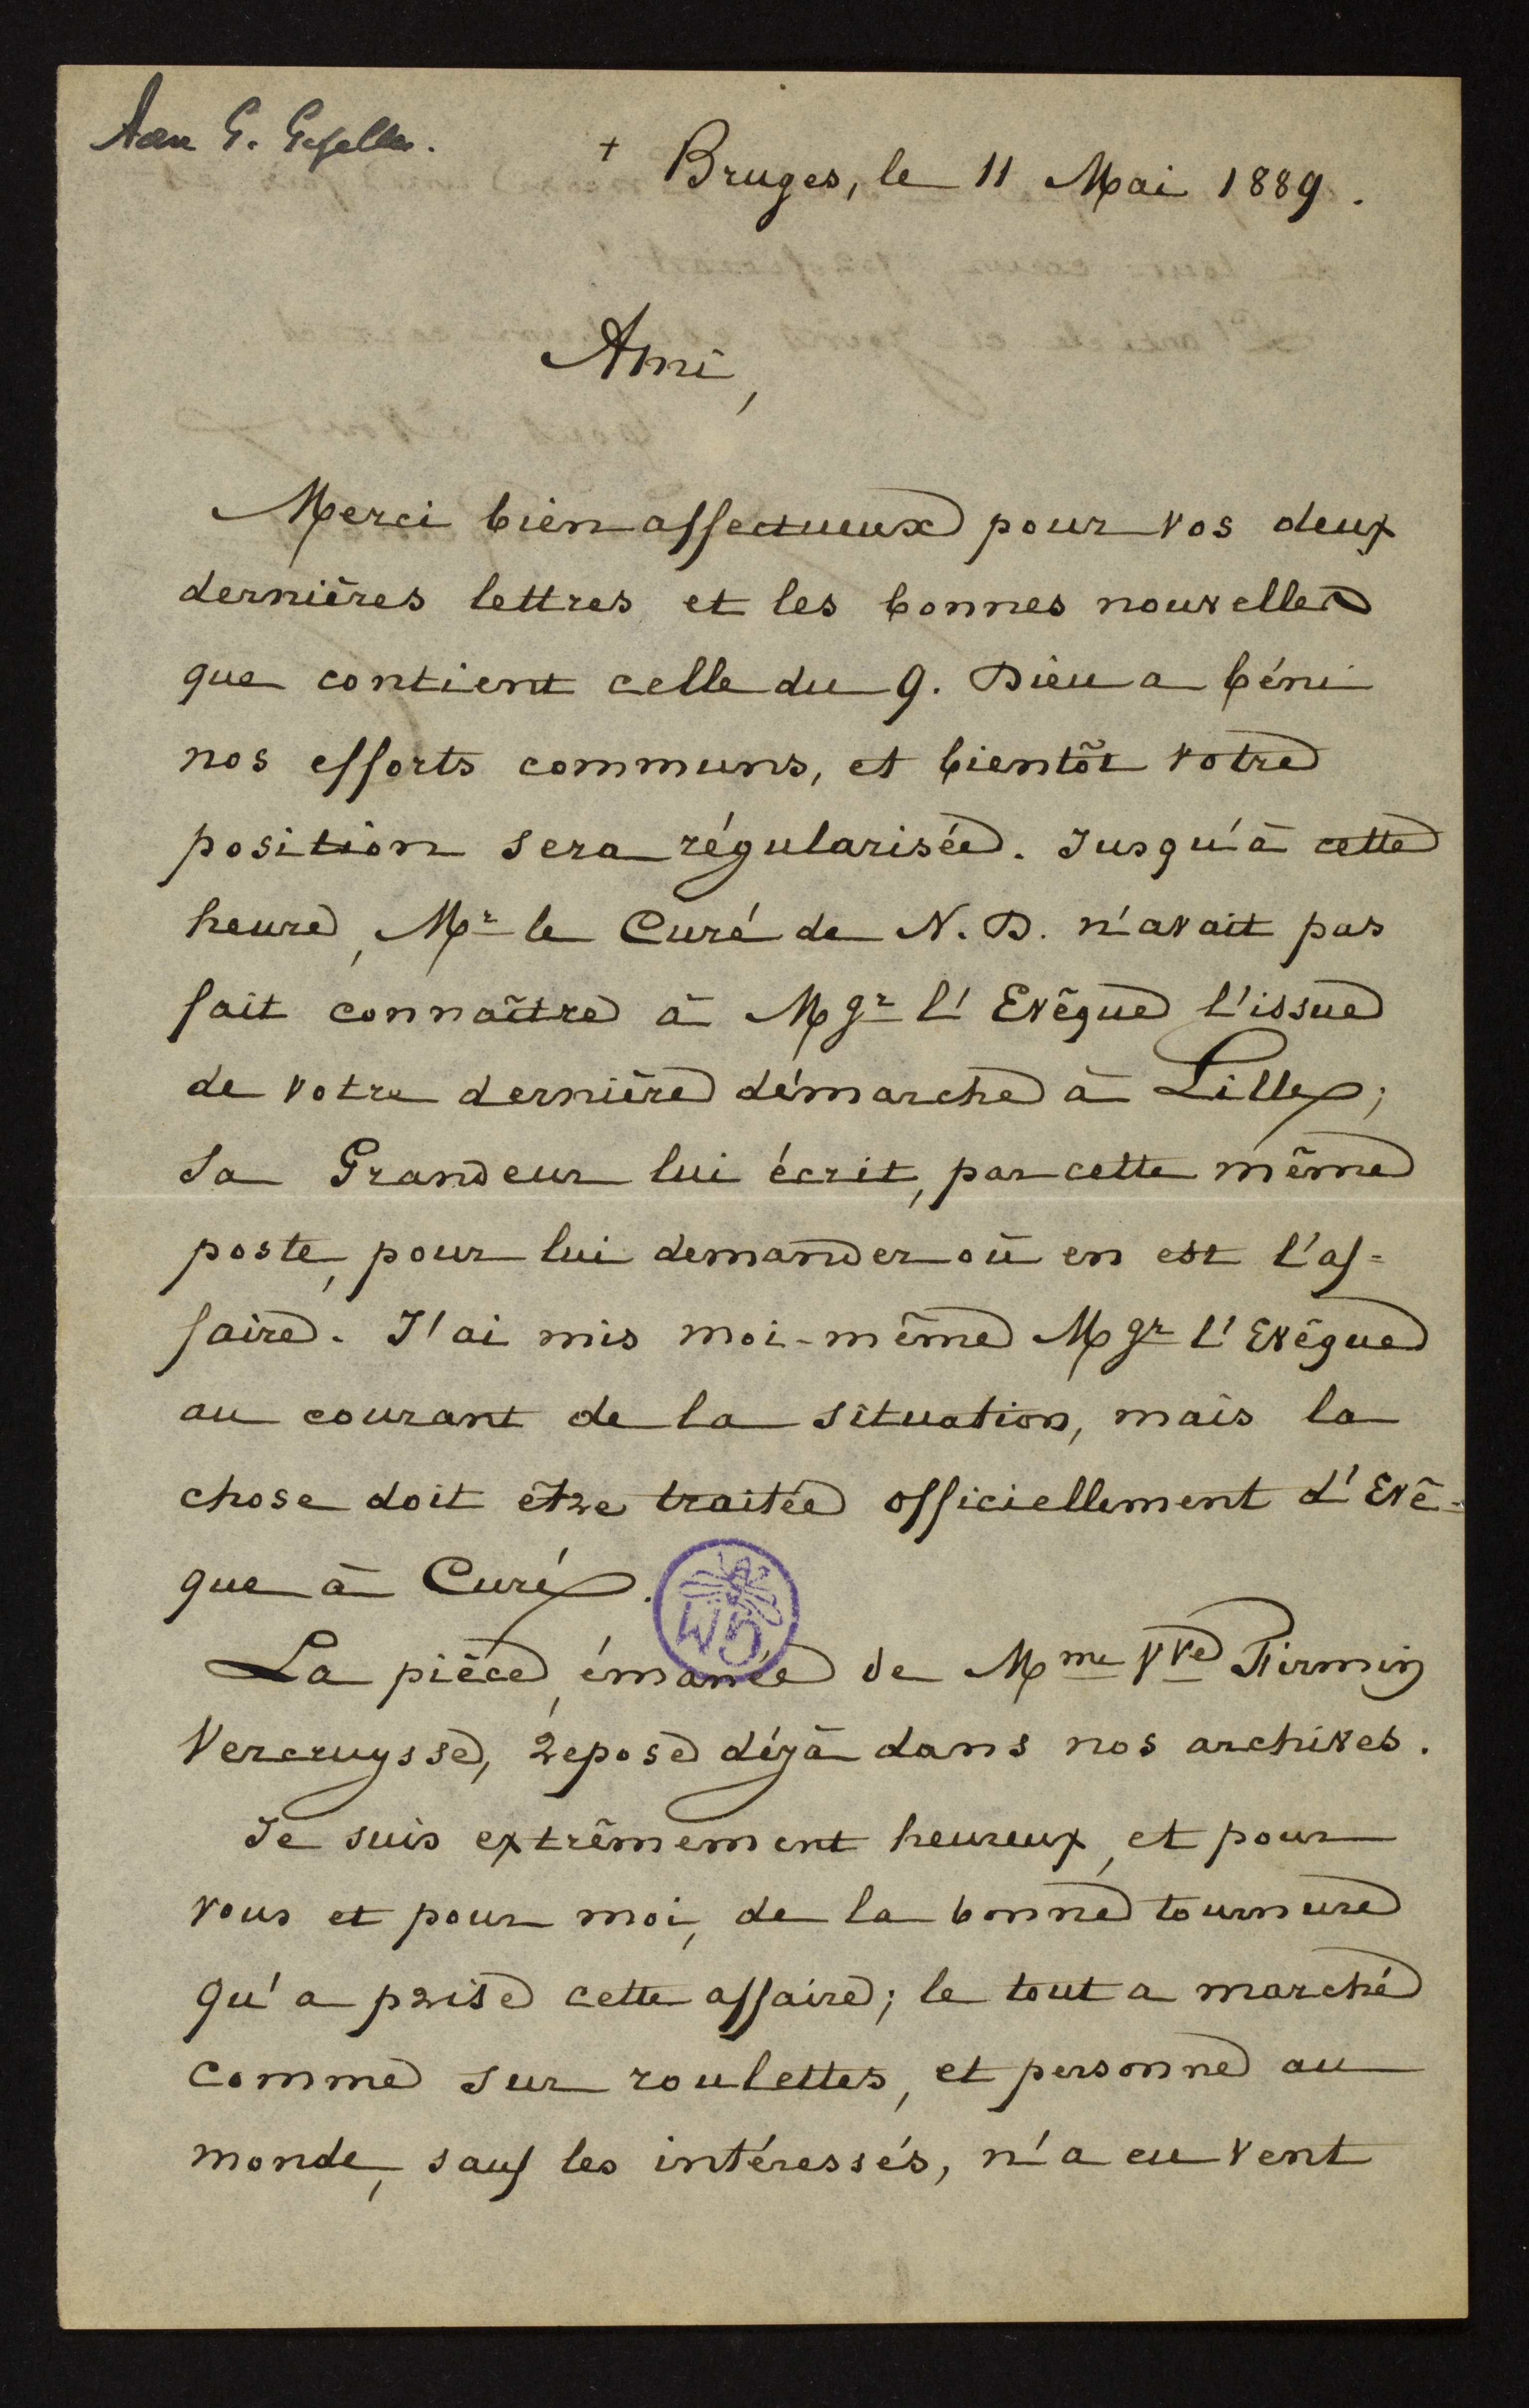 Aan G. Gezelle.
+ Bruges, le 11 Mai 1889.
Ami,
Merci bien affectueux pour vos deux
dernières lettres et les bonnes nouvelles
que contient celle du 9. Dieu a béni
nos efforts communs, et bientôt votre
position sera régularisée. Jusqu'à cette
heure, Mr le Curé de N. D. n'avait pas
fait connaître à Mgr l'Evêque l'issue
de votre dernière démarche à Lille;
Sa Grandeur lui écrit, par cette même
poste, pour lui demander où en est l'af-
faire. J'ai mis moi-même Mgr l'Evêque
au courant de la situation, mais la
chose doit être traitée officiellement d'Evê-
que à Curé.
GM
La pièce, émanée de Mme Vve Firmin
Vercruysse, repose déjà dans nos archives.
Je suis extrêmement heureux, et pour
vous et pour moi, de la bonne tournure
qu'a prise cette affaire; le tout a marché
comme sur roulettes, et personne au
monde, sauf les intéressés, n'a eu vent